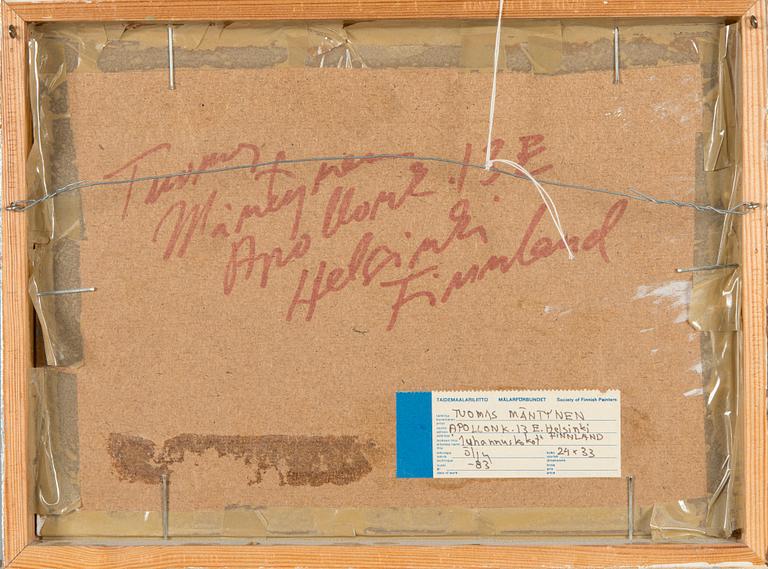 Tuomas
Mäntynen
Apollonk. 13 E
Helsinki
Finnland
TAIDEMAALARILIITTO MÅLARFÖRBUNDET Society of Finnish Painters
TUOMAS MÄNTYNEN
APOLLONK. 13 E. Helsinki
FINNLAND
24 x 33
-83
date of work